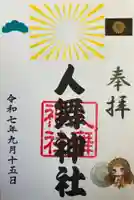 奉拝
人舞神社
令和七年九月十五日